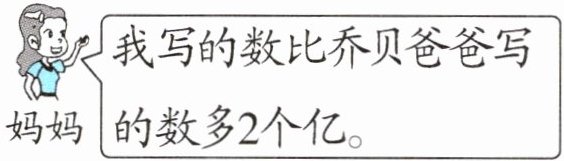 我写的数比乔贝爸爸写
妈妈 的数多2个亿。